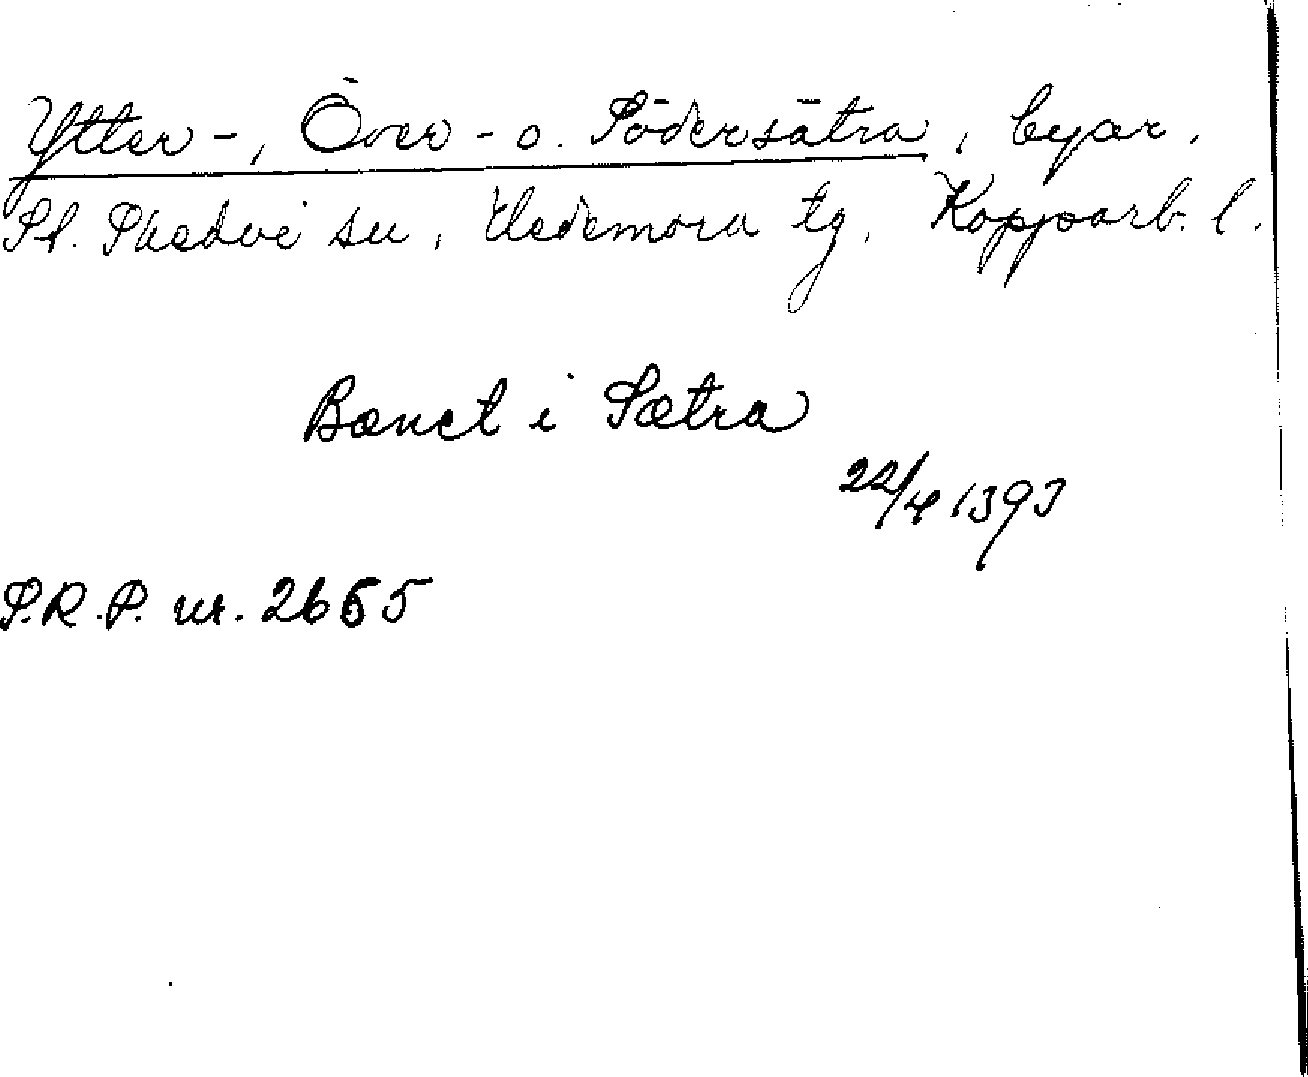 Ytter-, Över- o. Södersätra, byar,
St. Skedvi sn, Hedemora tg, Kopparb. l.
Bænct i Sætra
22/4 1393
S.R.P. nr. 2665